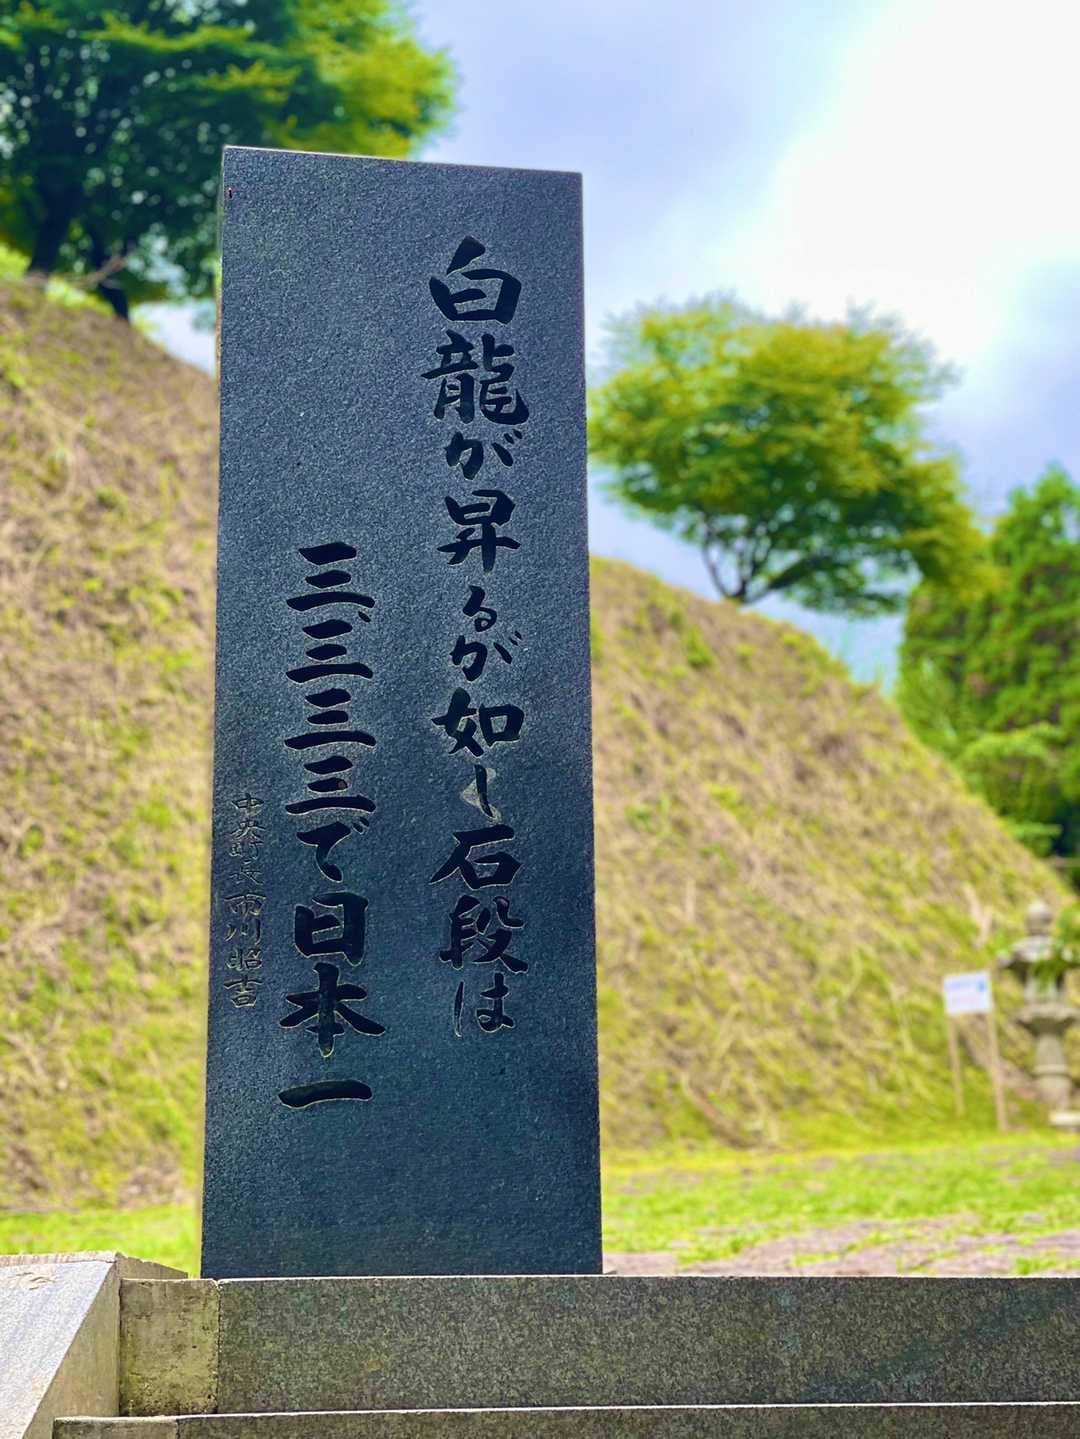 白龍が昇るが如し石段は
三、三三三で日本一
中央町長市川昭吉